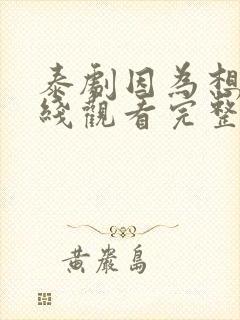 泰劇因為想
綫觀看完整
黃巖島